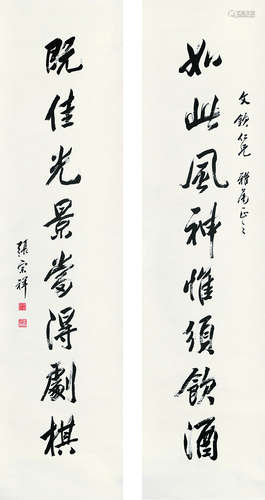 文錦仁兄 雅屬正之
如此風神惟須飲酒
既佳光景當得劇棋
張宗祥